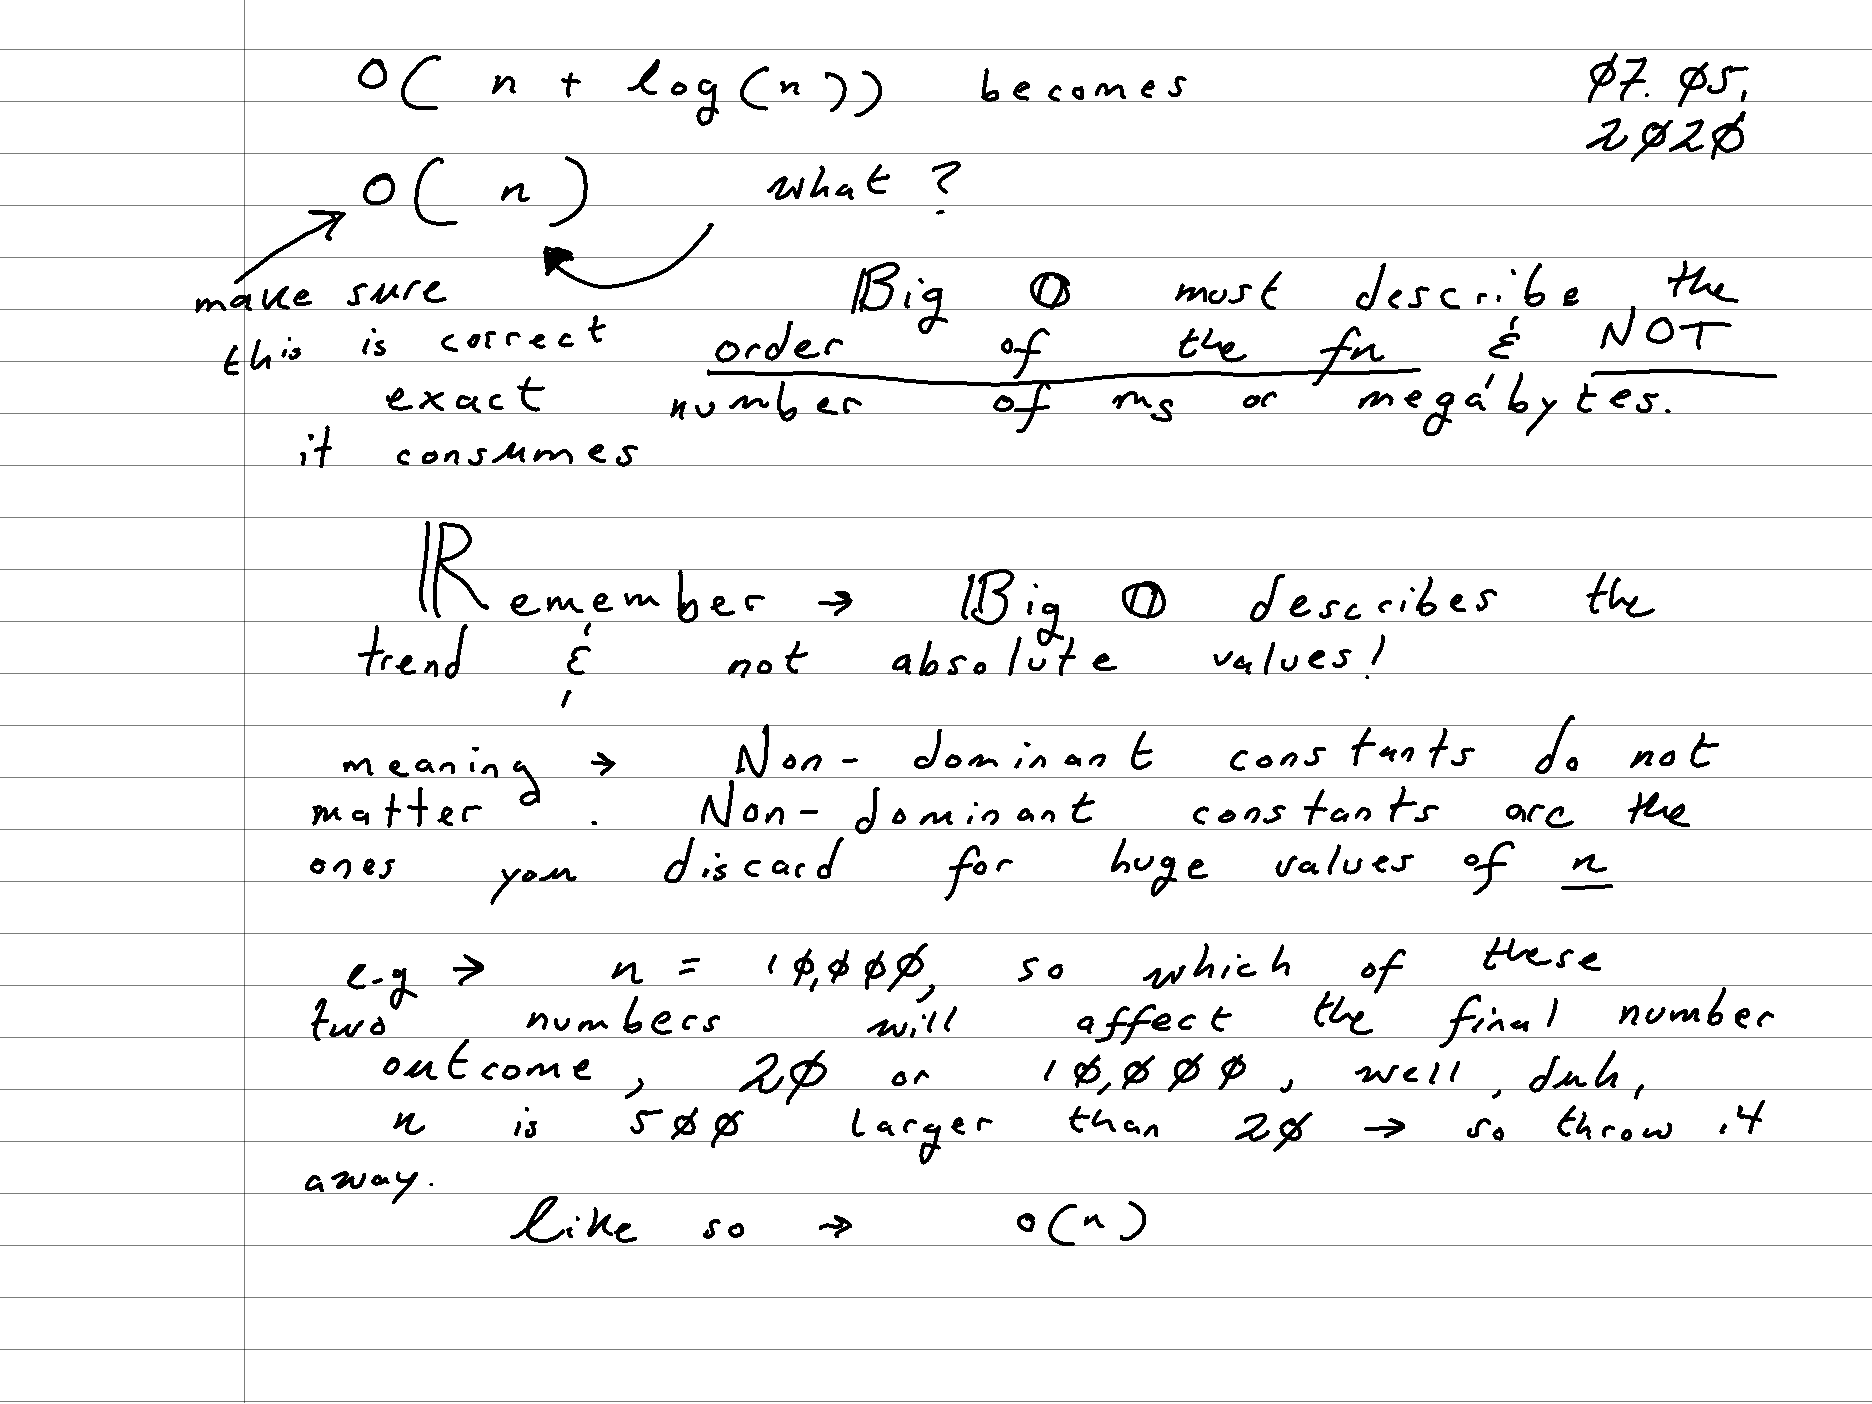 O( n + log(n)) becomes
07.05.
2020
O( n ) what?
make sure
this is correct
Big O must describe the
order of the fn & NOT
exact number of ms or megabytes.
it consumes
Remember → Big O describes the
trend & not absolute values!
meaning → Non-dominant constants do not
matter. Non-dominant constants are the
ones you discard for huge values of n
e.g → n = 10,000, so which of these
two numbers will affect the final number
outcome, 20 or 10,000, well, duh,
n is 500 larger than 20 → so throw it
away.
like so → o(n)